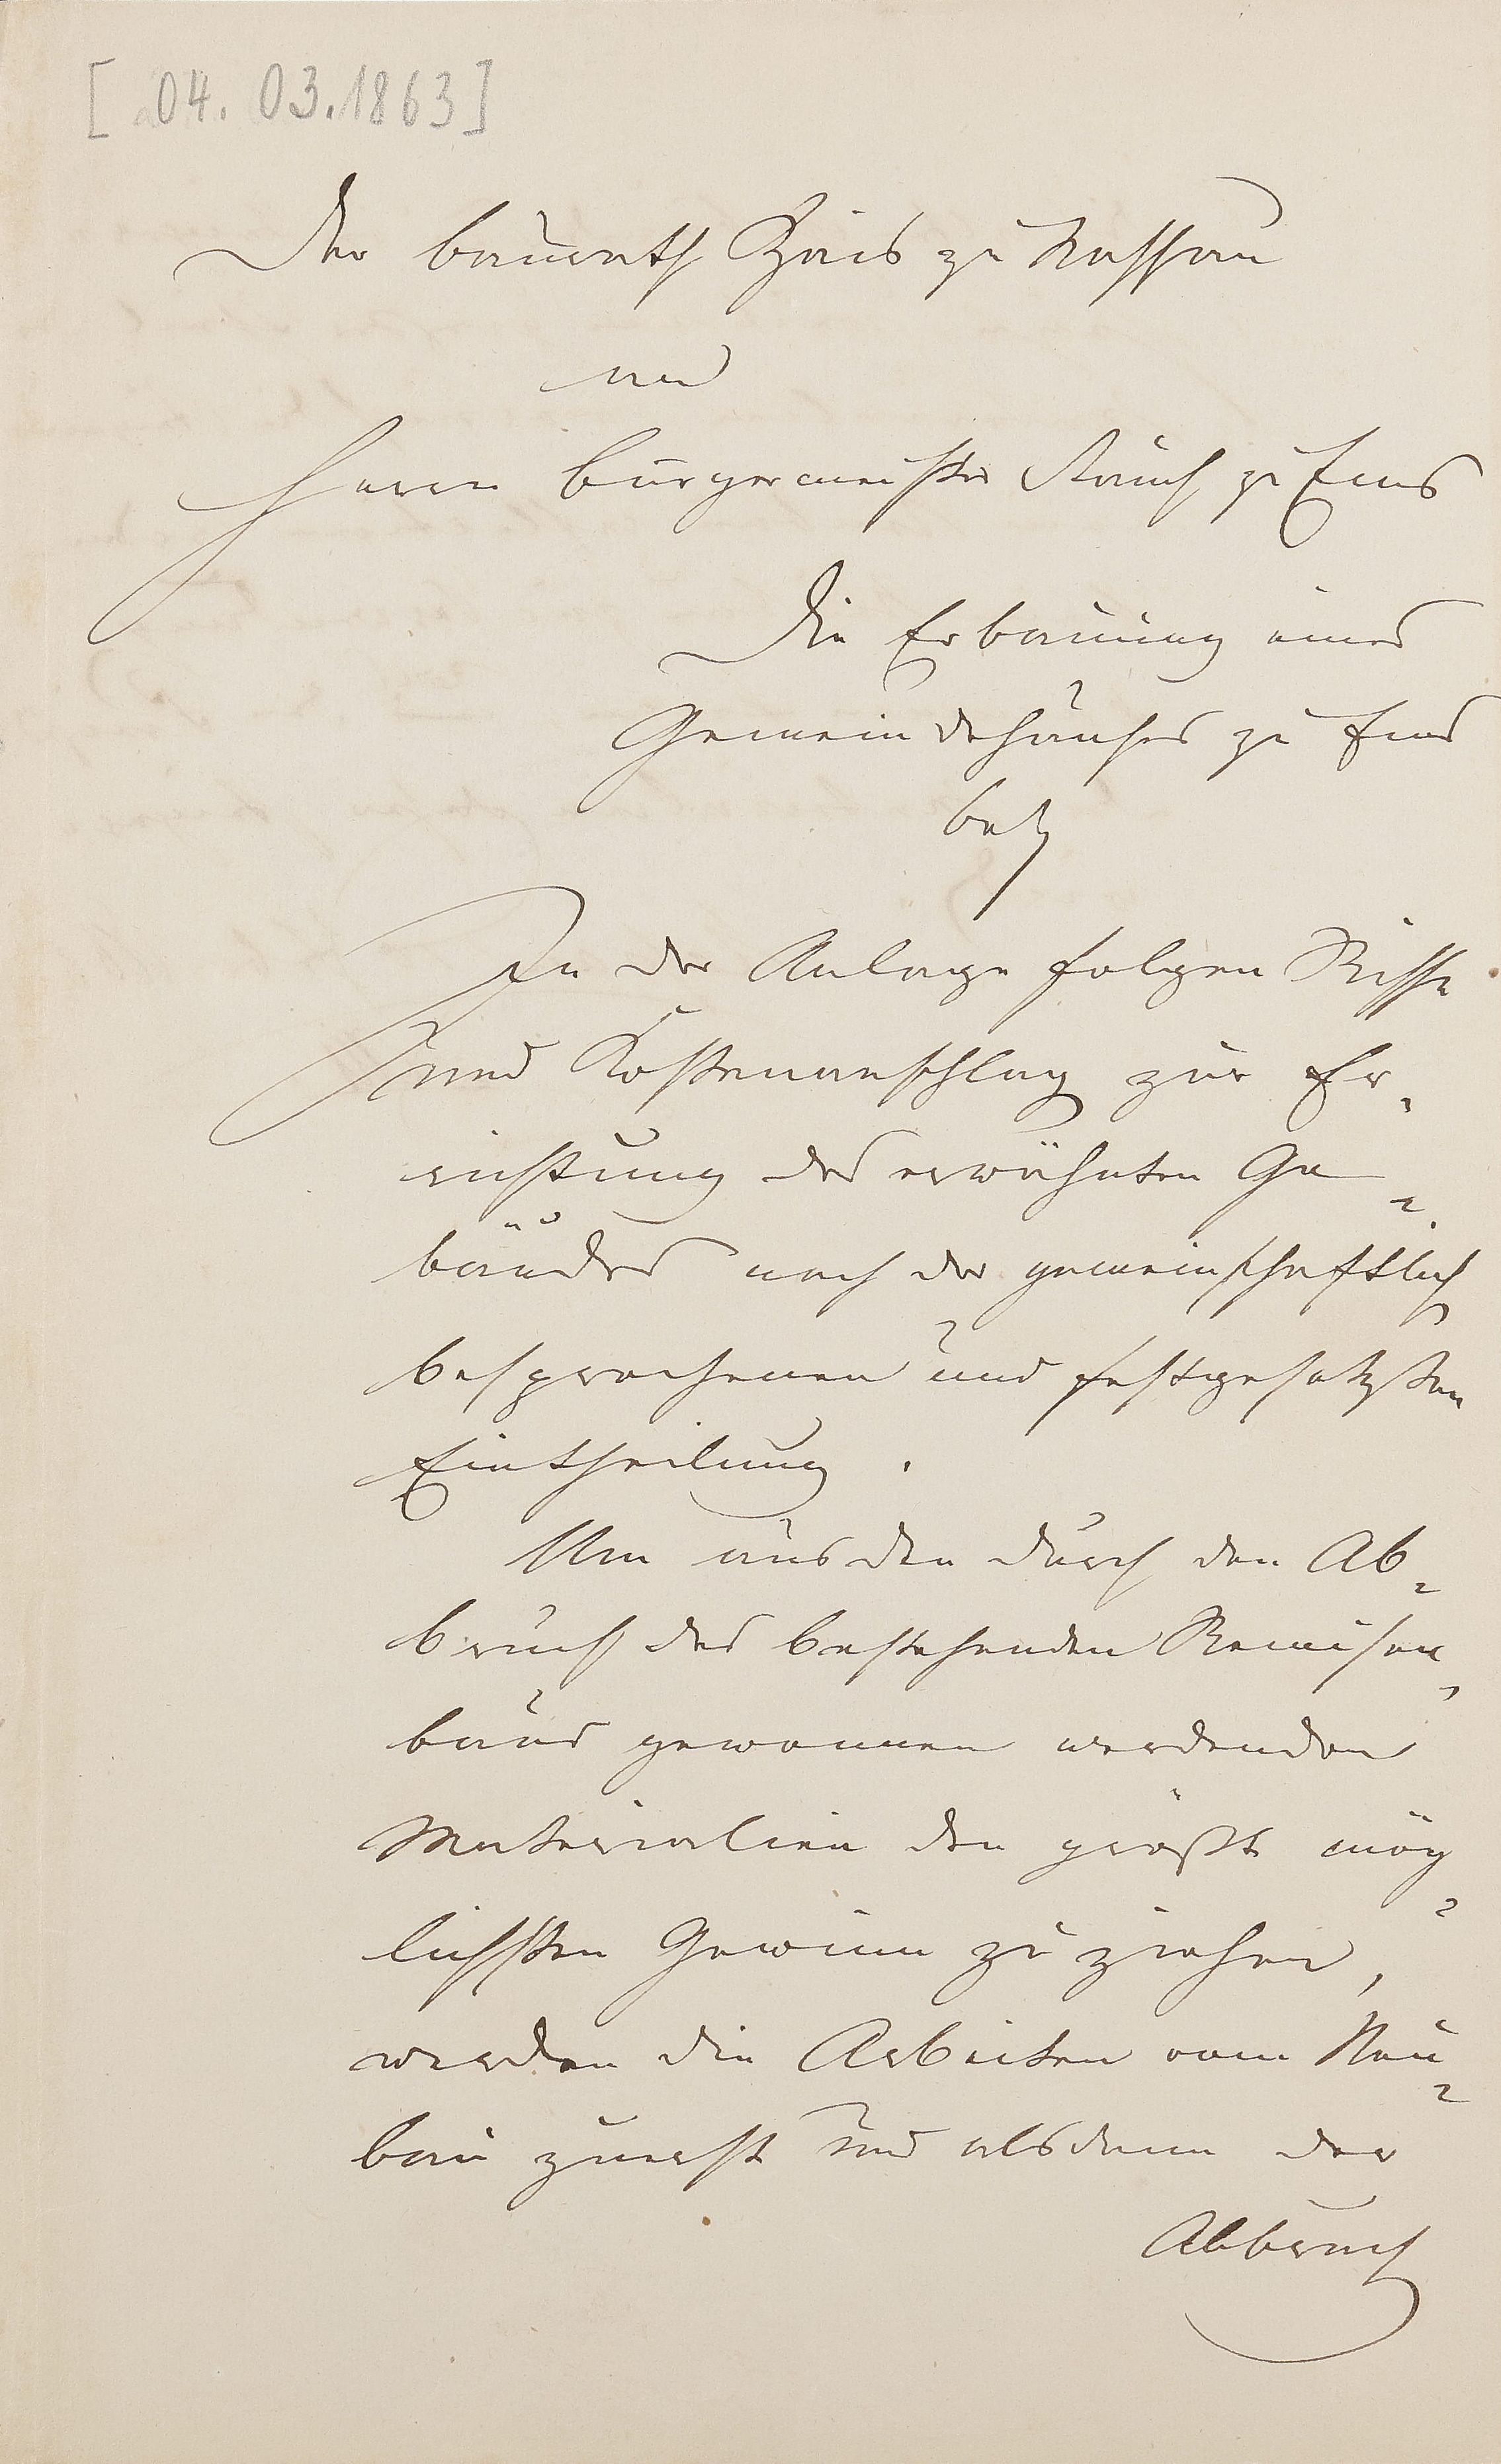 [04.03.1863]
Der Baurath Zais zu Nassau
an
Herrn Bürgermeister zu Ems
Die Erbauung eines
Gemeindehauses zu Ems
betr
In der Anlage folgen Risse
und Kostenanschlag zur Er-
richtung des erwähnten Ge-
bäudes nach der gemeinschaftlich
besprochenen und festgesetzten
Eintheilung.
Um aus den durch den Ab-
bruch des bestehenden Remisen-
baus gewonnen werdenden
Materialien den größt mög-
lichsten Gewinn zu ziehen,
werden die Arbeiten vom Neu-
bau zuerst und alsdann der
Abbruch